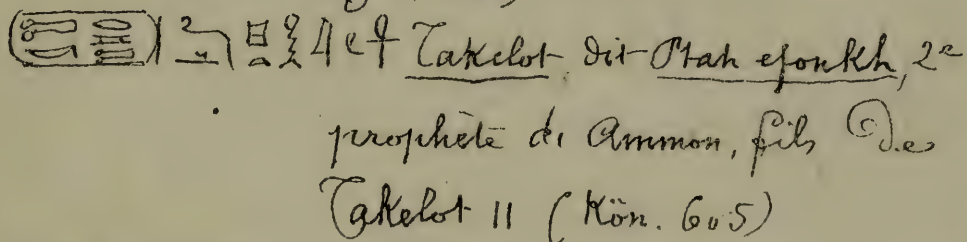 Takelot dit Ptah efonkh, 2e
prophète d'Ammon, fils de
Takelot II (Kön. 605)